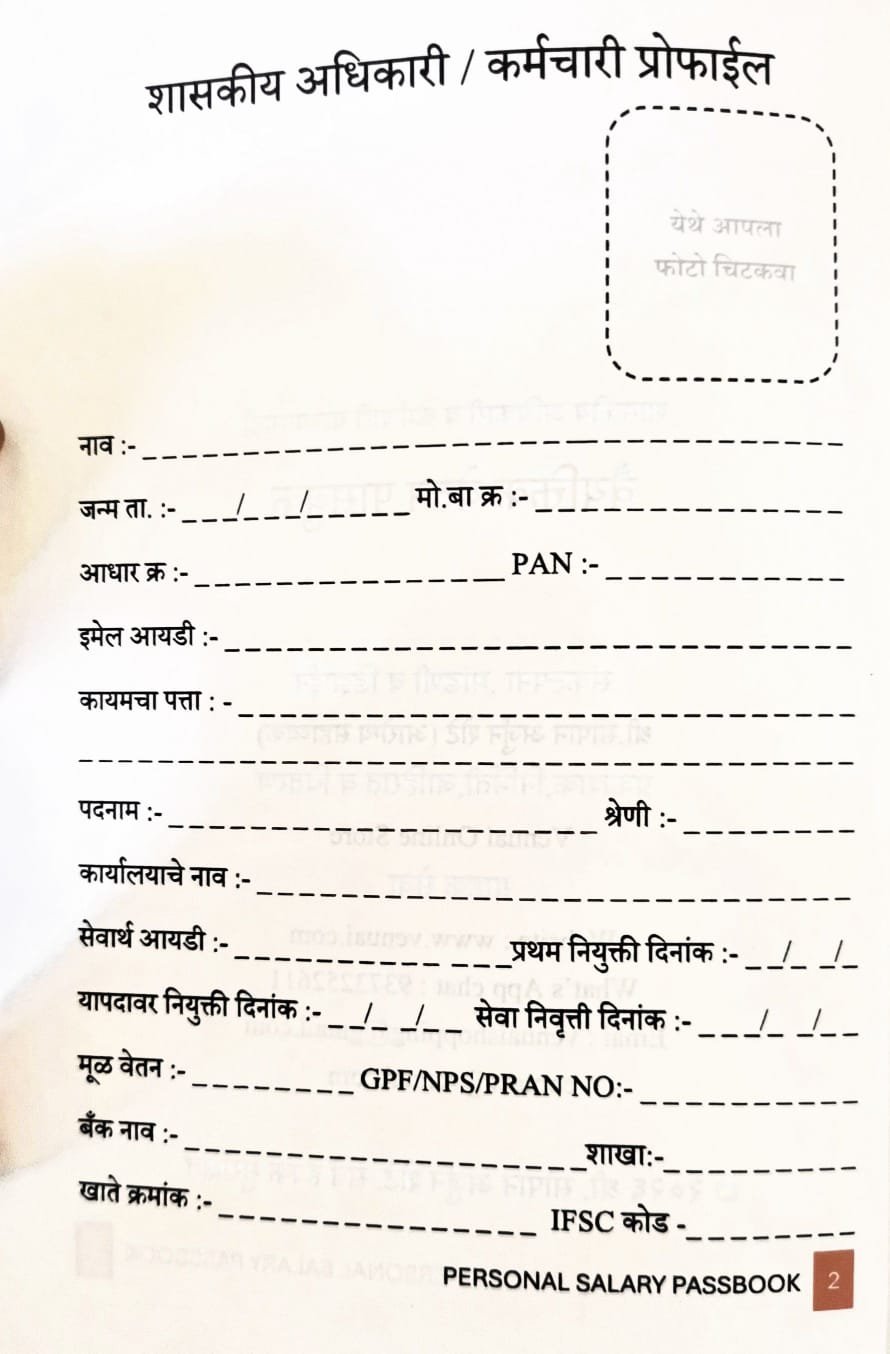 शासकीय अधिकारी / कर्मचारी प्रोफाईल
येथे आपला
फोटो चिटकवा
नाव :-
जन्म ता. :- / / मो.बा क्र :-
आधार क्र :- PAN :-
इमेल आयडी :-
कायमचा पत्ता : -
पदनाम :- श्रेणी :-
कार्यालयाचे नाव :-
सेवार्थ आयडी :- प्रथम नियुक्ती दिनांक :- / /
यापदावर नियुक्ती दिनांक :- / / सेवा निवृत्ती दिनांक :- / /
मूळ वेतन :- GPF/NPS/PRAN NO:-
बँक नाव :- शाखा:-
खाते क्रमांक :- IFSC कोड -
PERSONAL SALARY PASSBOOK 2